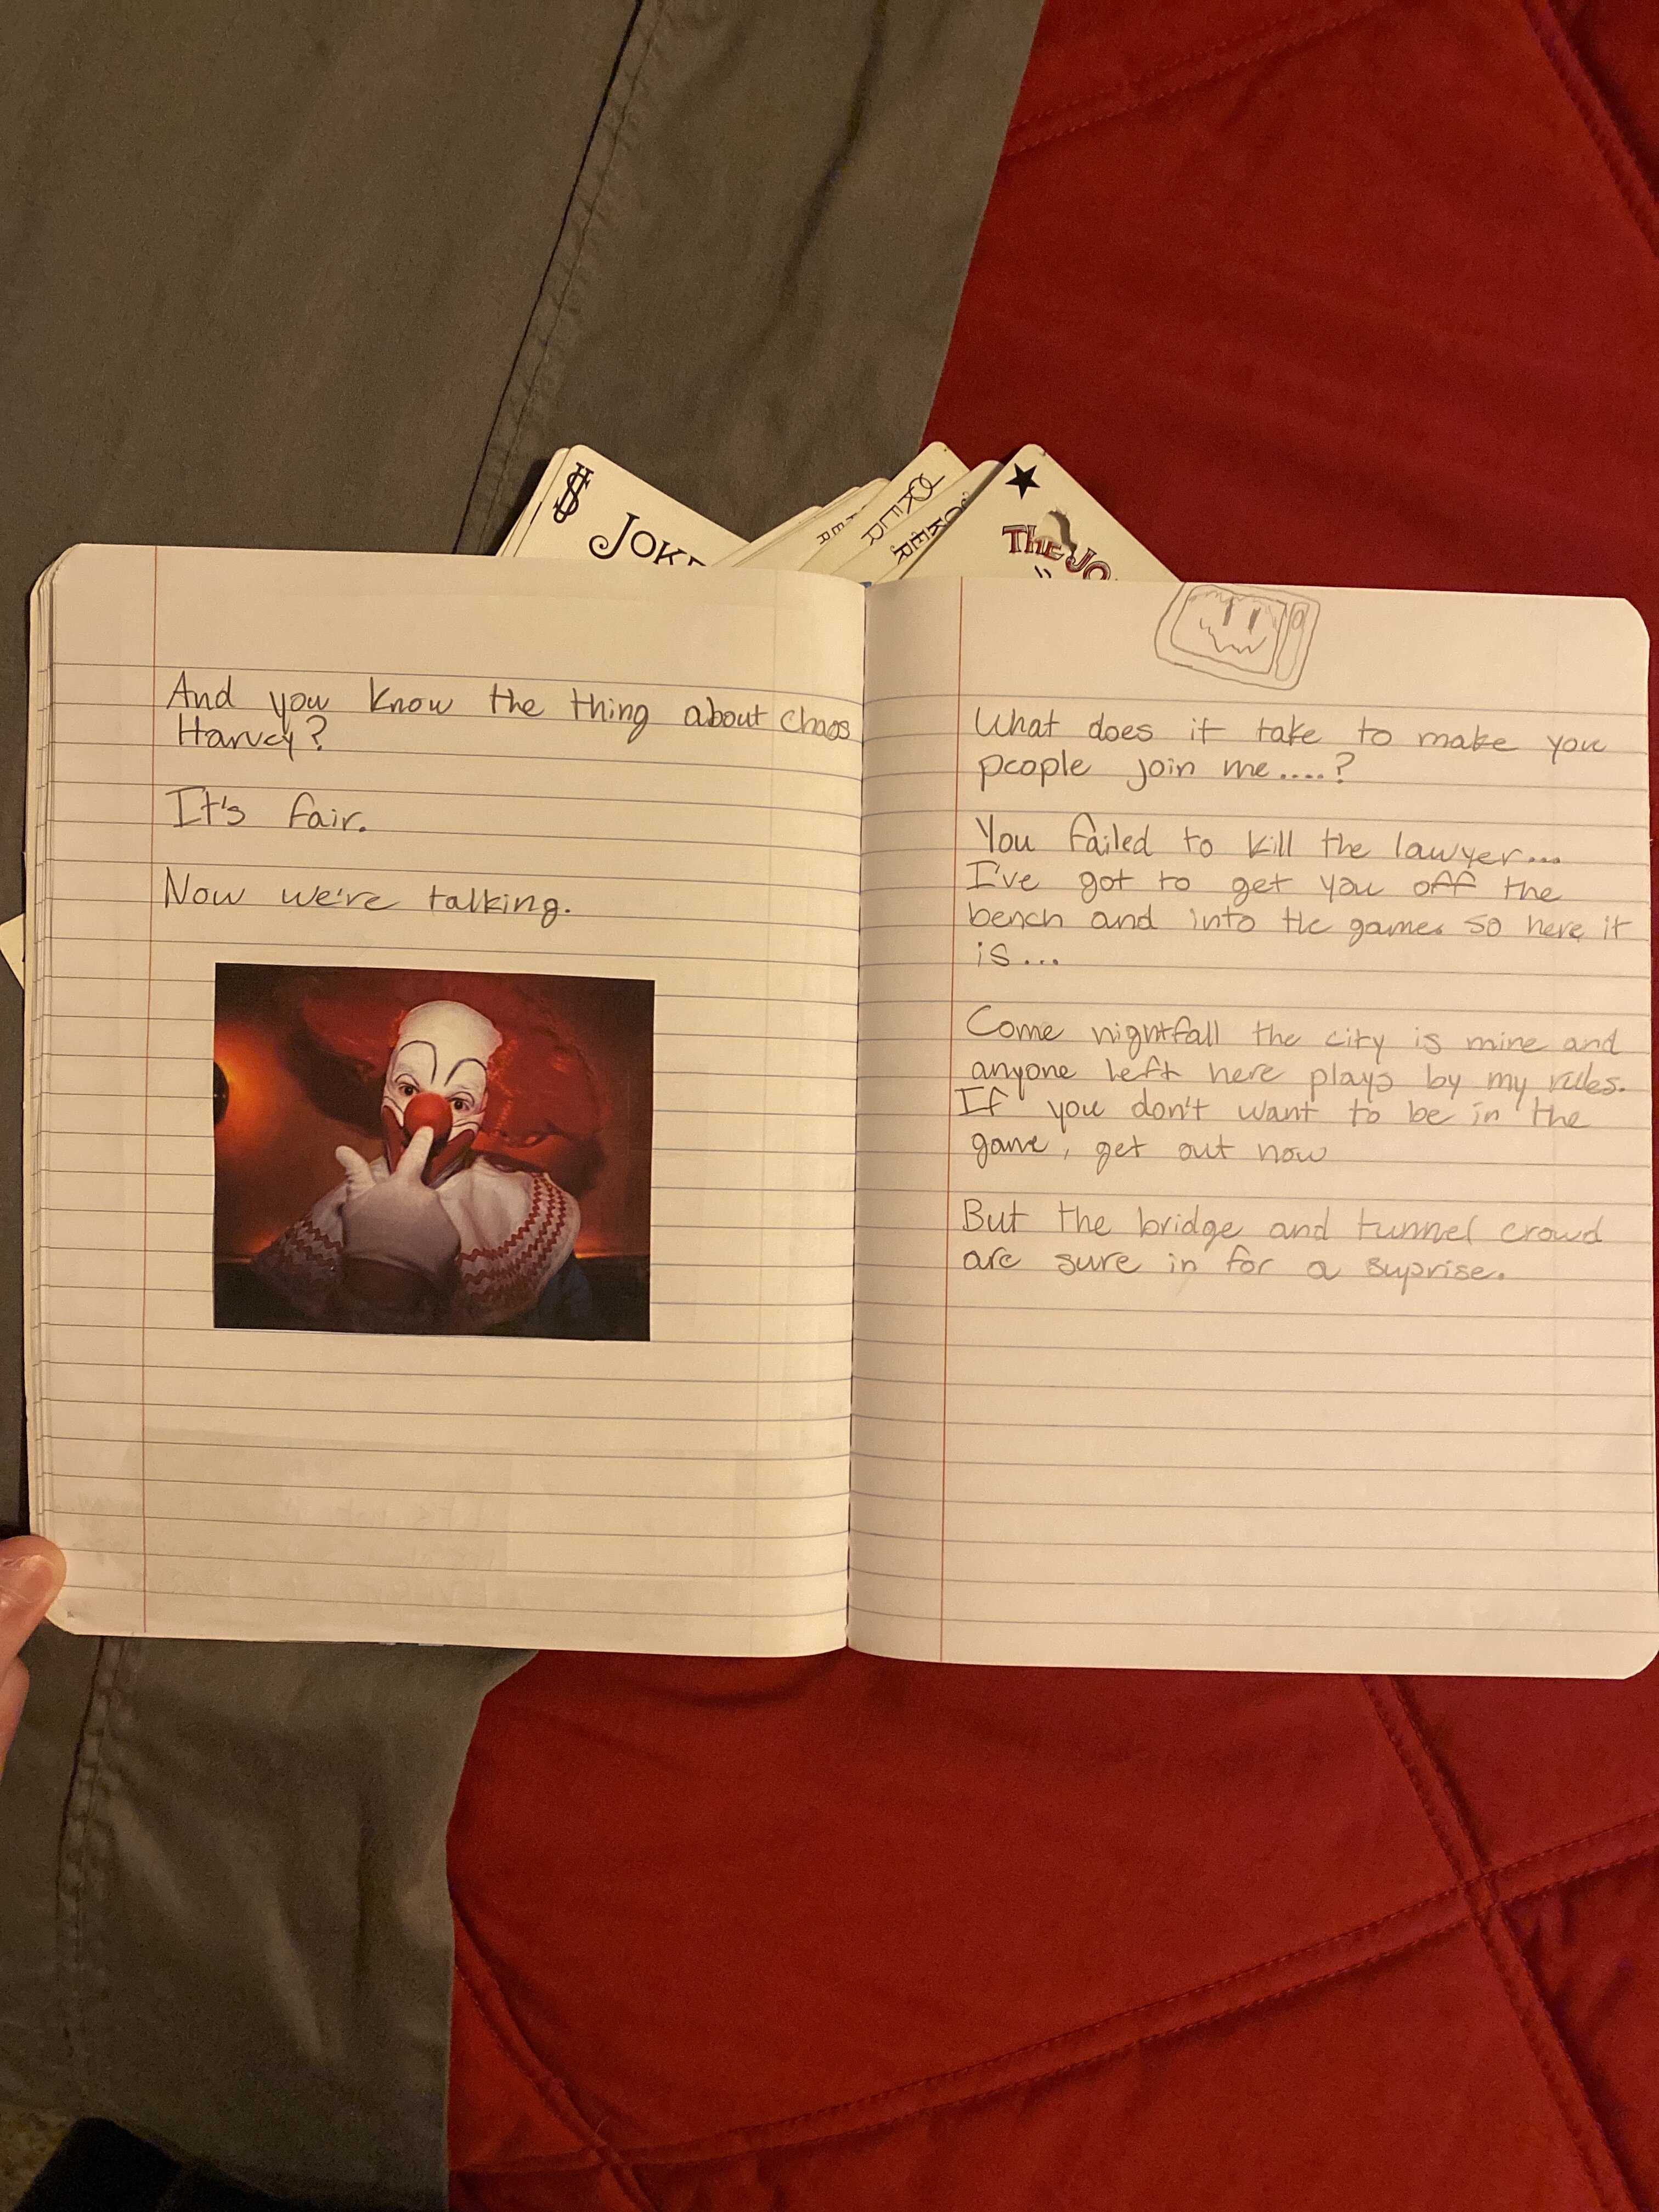 JOKE
JOKER
JOKER
The JO
And you know the thing about chaos
Harvey?
It's fair.
Now we're talking.
What does it take to make you
people join me.....?
You failed to kill the lawyer...
I've got to get you off the
bench and into the game. so here it
is...
Come nightfall the city is mine and
anyone left here plays by my rules.
If you don't want to be in the
game, get out now
But the bridge and tunnel crowd
are sure in for a suprise.